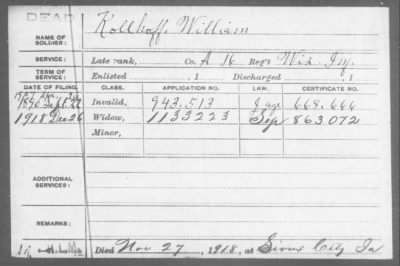 DEAD
NAME OF SOLDIER: Kollhoff, William
SERVICE: Late rank, Co. A 16 Reg't Wis Inf.
TERM OF SERVICE: Enlisted , 1 Discharged , 1
DATE OF FILING. CLASS. APPLICATION NO. LAW. CERTIFICATE NO.
1890 Sept 22 Invalid, 943,513 668,666
1918 Dec 26 Widow, 1133223 Sep 863,072
Minor,
ADDITIONAL SERVICES:
REMARKS:
Died Nov 27, 1918, at Sioux City Ia